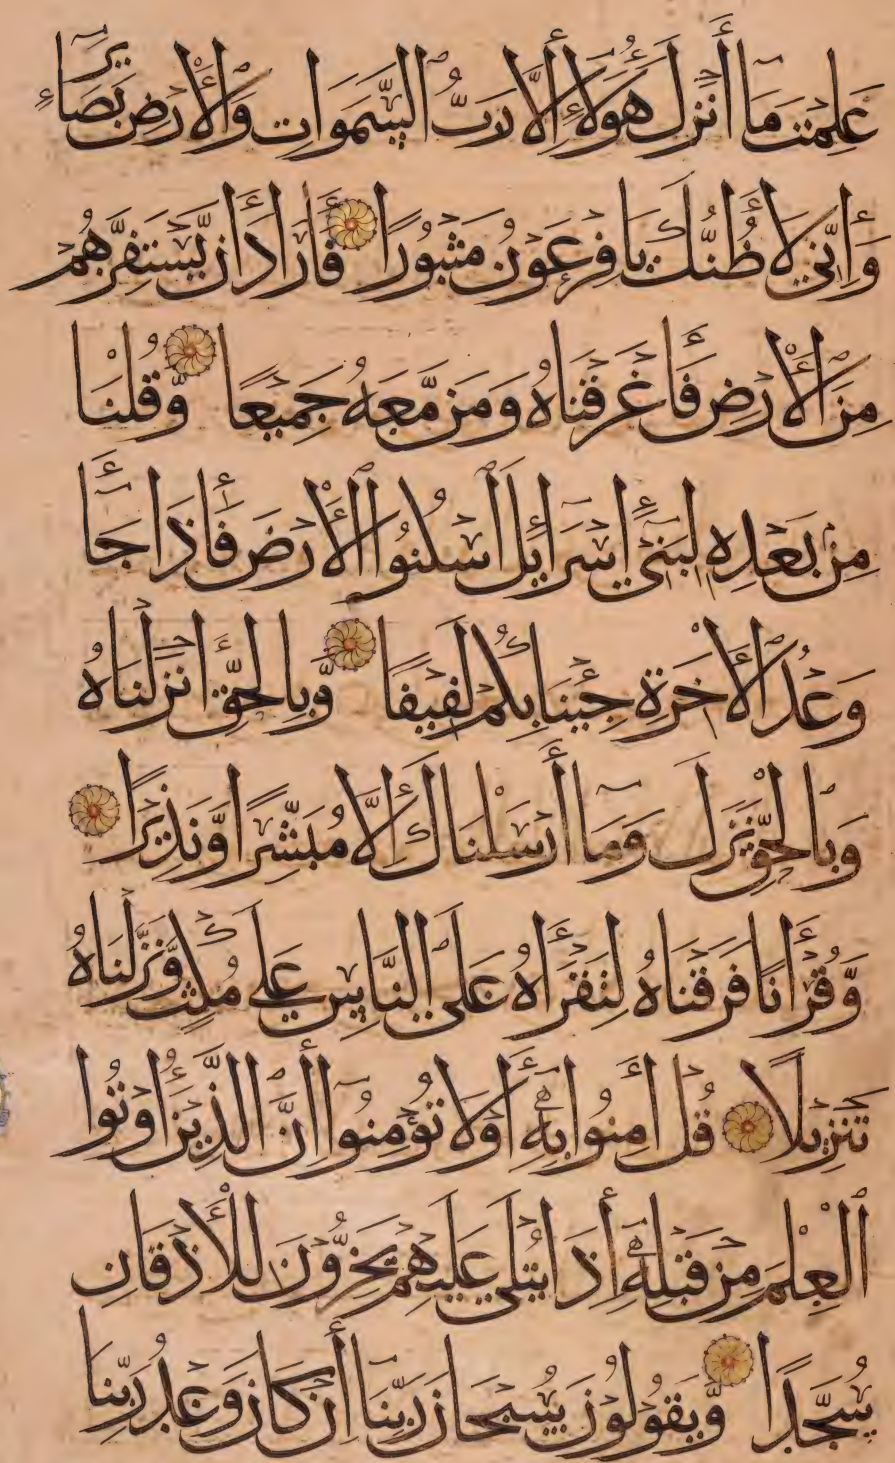 عَلِمْتَ مَا أَنْزَلَ هَؤُلَاءِ إِلَّا رَبُّ السَّمَوَاتِ وَالْأَرْضِ بَصَائِرَ
وَإِنِّي لَأَظُنُّكَ يَا فِرْعَوْنُ مَثْبُورًا فَأَرَادَ أَنْ يَّسْتَفِزَّهُمْ
مِنَ الْأَرْضِ فَأَغْرَقْنَاهُ وَمَنْ مَّعَهُ جَمِيعًا وَّقُلْنَا
مِنْ بَعْدِهِ لِبَنِي إِسْرَائِلَ اسْكُنُوا الْأَرْضَ فَإِذَا جَاءَ
وَعْدُ الْآخِرَةِ جِئْنَا بِكُمْ لَفِيفًا وَّبِالْحَقِّ أَنْزَلْنَاهُ
وَبِالْحَقِّ نَزَلَ وَمَا أَرْسَلْنَاكَ إِلَّا مُبَشِّرًا وَّنَذِيرًا
وَّقُرْأَنًا فَرَقْنَاهُ لِتَقْرَأَهُ عَلَى النَّاسِ عَلَى مُكْثٍ وَّنَزَّلْنَاهُ
تَنْزِيلًا قُلْ أَمِنُوا بِهِ أَوْ لَا تُؤْمِنُوا إِنَّ الَّذِينَ أُوتُوا
الْعِلْمَ مِنْ قَبْلِهِ إِذَا يُتْلَى عَلَيْهِمْ يَخِرُّونَ لِلْأَذْقَانِ
سُجَّدًا وَّيَقُولُونَ سُبْحَانَ رَبِّنَا إِنْ كَانَ وَعْدُ رَبِّنَا